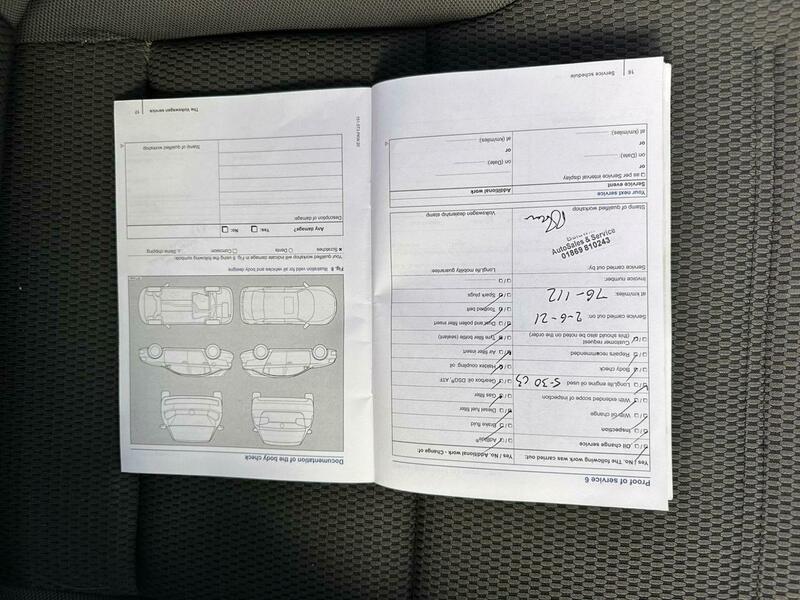 Proof of service 6
Yes / No. The following work was carried out:
☐ / ☐ Oil change service
☐ / ☐ Inspection
☐ / ☐ With oil change
☐ / ☐ With extended scope of inspection
☐ / ☐ LongLife engine oil used 5-30 C3
☐ / ☐ Body check
☐ / ☐ Repairs recommended
☐ / ☐ Customer request
(this should also be noted on the order)
Service carried out: on: 2-6-21
at km/miles: 76-112
Invoice number:
Service carried out by:
AutoSales & Service
01869 810243
Stamp of qualified workshop
Yes / No. Additional work - Change of:
☐ / ☐ AdBlue®
☐ / ☐ Brake fluid
☐ / ☐ Diesel fuel filter
☐ / ☐ Gas filter
☐ / ☐ Gearbox oil DSG®, ATF
☐ / ☐ Haldex coupling oil
☐ / ☐ Air filter insert
☐ / ☐ Tyre filler bottle (sealant)
☐ / ☐ Dust and pollen filter insert
☐ / ☐ Toothed belt
☐ / ☐ Spark plugs
☐ / ☐
LongLife mobility guarantee:
Volkswagen dealership stamp
Your next service
Service event
☐ as per Service interval display
or
on (Date):
or
at (km/miles):
Additional work
on (Date):
or
at (km/miles):
16 Service schedule
Documentation of the body check
Fig. 8 Illustration valid for all vehicles and body designs
Your qualified workshop will indicate damage in Fig. 8 using the following symbols:
× Scratches ○ Dents □ Corrosion △ Stone chipping
Any damage? Yes ☐ No: ☐
Description of damage:
Stamp of qualified workshop
The Volkswagen service 17